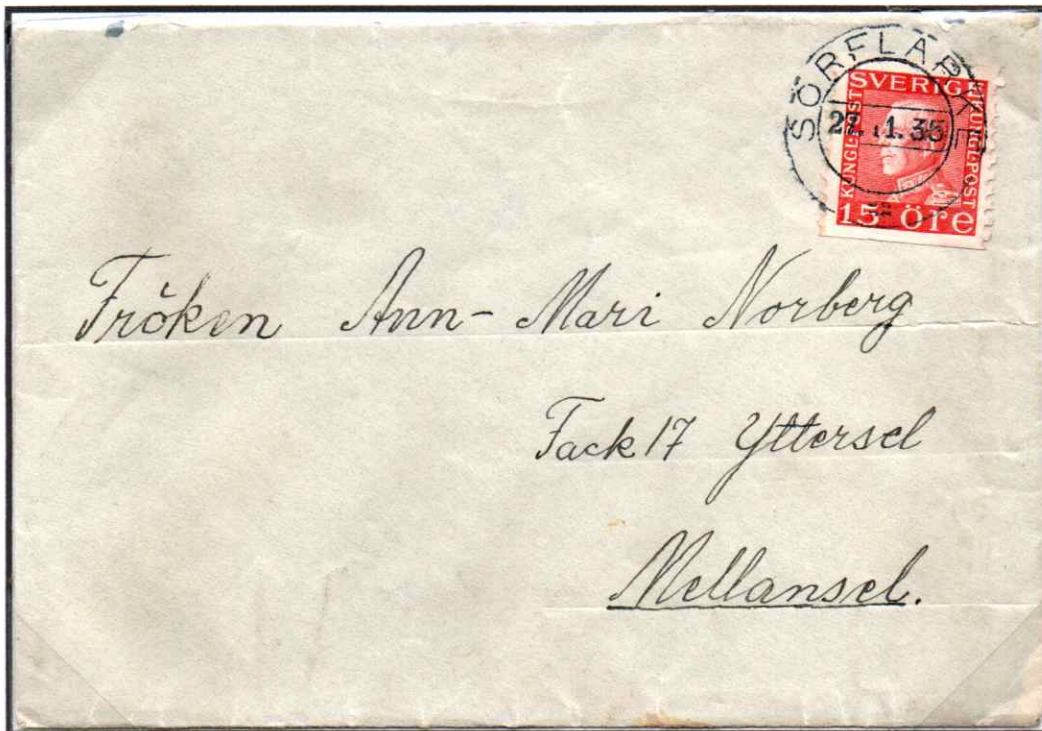 SÖRFLÄRKE
SVERIGE
KUNGL·POST
KUNGL·POST
15 öre
Fröken Ann-Mari Norberg
Fack 17 Yttersel
Mellansel.